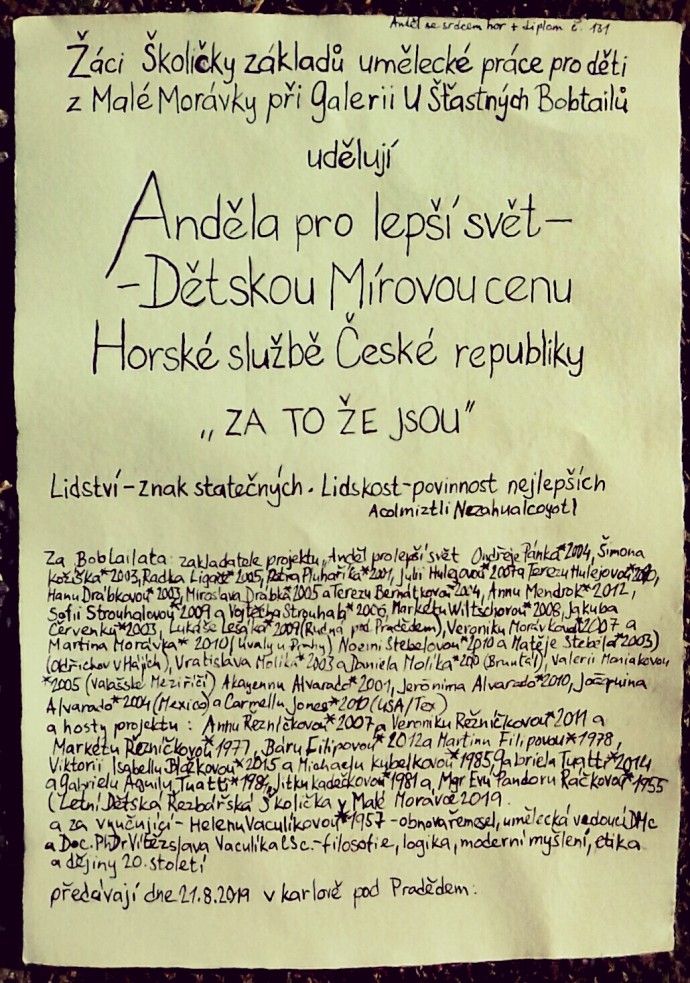 Anděl se srdcem hor + diplom č. 131
Žáci Školičky základů umělecké práce pro děti
z Malé Morávky při Galerii U Šťastných Bobtailů
udělují
Anděla pro lepší svět –
– Dětskou Mírovou cenu
Horské službě České republiky
„ZA TO ŽE JSOU"
Lidství – znak statečných. Lidskost – povinnost nejlepších
Acolmiztli Nezahualcoyotl
Za Bobtailata: zakladatele projektu „Anděl pro lepší svět Ondřeje Pánka *2004, Šimona
Kožíška *2003, Radka Ligače *2005, Petra Pluhaříka *2001, Julii Hulejovou *2007 a Terezu Hulejovou
Hanu Drábkovou *2003, Miroslava Drábka *2005 a Terezu Bernátkovou *2004, Annu Mendrok *2012,
Sofii Strouhalovou *2009 a Vojtěcha Strouhala *2006, Markétu Wiltschovou *2008, Jakuba
Červenku *2003, Lukáše Lesáka *2009 (Rudná pod Pradědem), Veroniku Morávkovou *2007 a
Martina Morávka *2010 (Úvaly u Prahy) Noemi Stebelovou *2010 a Matěje Stebela *2003)
(Oldřichov v Hájích), Vratislava Molika *2003 a Daniela Molika (Bruntál), Valerii Maniakovou
*2005 (Valašské Meziříčí) Akayennu Alvarado *2001, Jerónima Alvarado *2010, Joaquina
Alvarado *2004 (Mexico) a Carmellu Jones *2010 (USA/Tex)
a hosty projektu: Annu Rezníčkovou *2007 a Veroniku Řezníčkovou *2011 a
Markétu Řezníčkovou *1977, Báru Filipovou *2012 a Martinu Filipovou *1978,
Viktorii Isabellu Blažkovou *2015 a Michaelu Kybelkovou *1985 Gabriela Tuatti *2014
a Gabrielu Aguilu Tuatti *1984, Jitku Kadečkovou *1981 a Mgr Evu Pandoru Račkovou *1955
(Letní Dětská Řezbářská Školička v Malé Morávce 2019.
a za vyučující – Helenu Vaculíkovou *1957 – obnova řemesel, umělecká vedoucí DMc
a Doc. PhDr Vítězslava Vaculíka CSc. – filosofie, logika, moderní myšlení, etika
a dějiny 20. století
předávají dne 21.8.2019 v Karlově pod Pradědem: